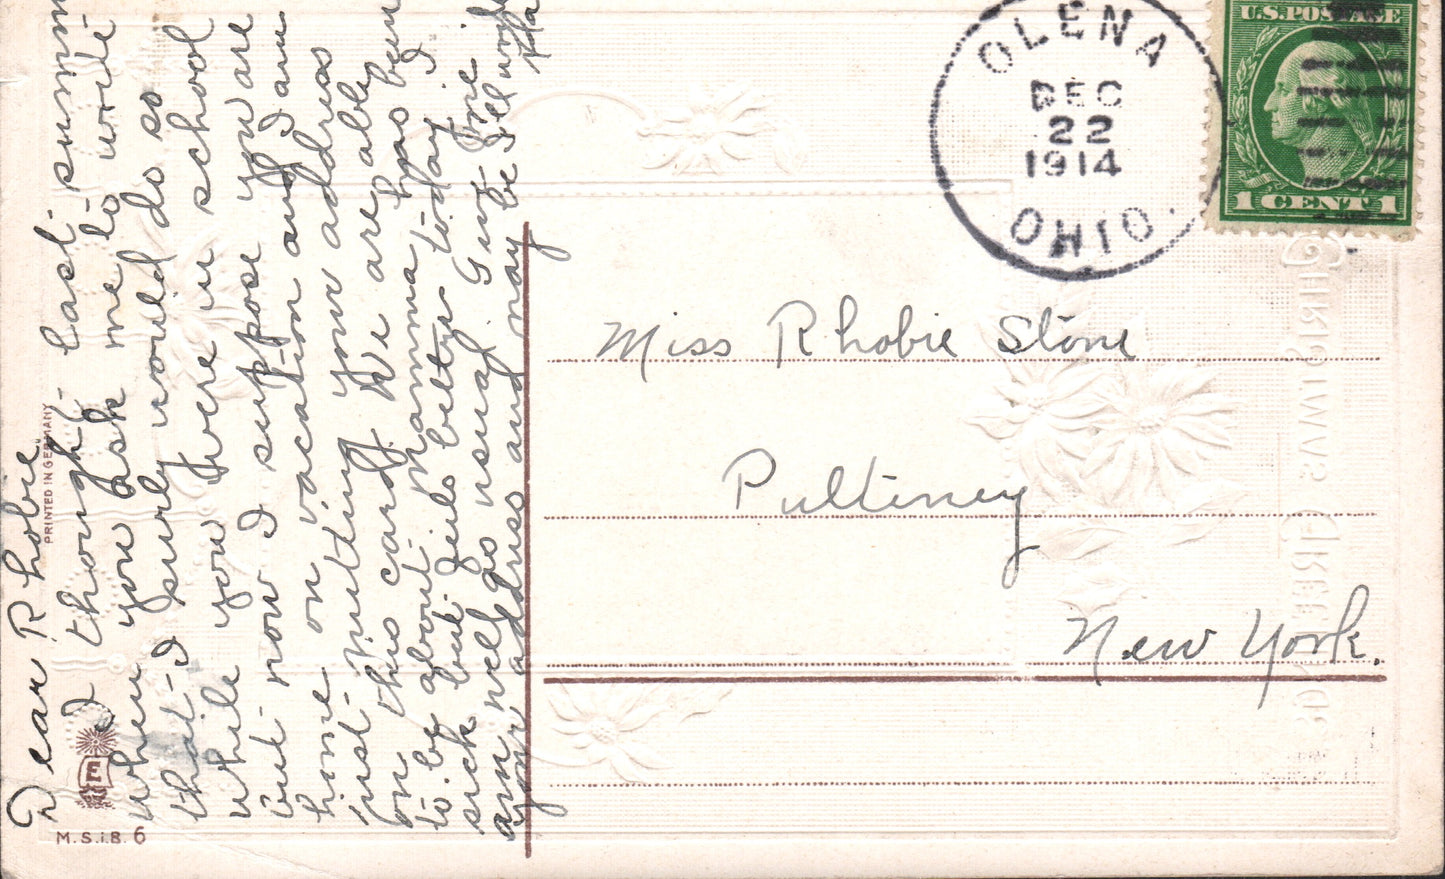 Dear Rhobie.
I though- last summ
when you ask me to write
that I surly would do so
while you were in school
but now I suppose you are
home on vacation and I am
just putting your address
on this card. We are able
to be about. Mamma has been
sick but feels better today I
am well as usual. Give me
your address and may be I'll
OLENA
DEC
22
1914
OHIO.
U.S. POSTAGE
1 CENT 1
Miss Rhobie Stone
Pultiney
New York.
PRINTED IN GERMANY
M.S.i.B. 6
CHRISTMAS GREETINGS